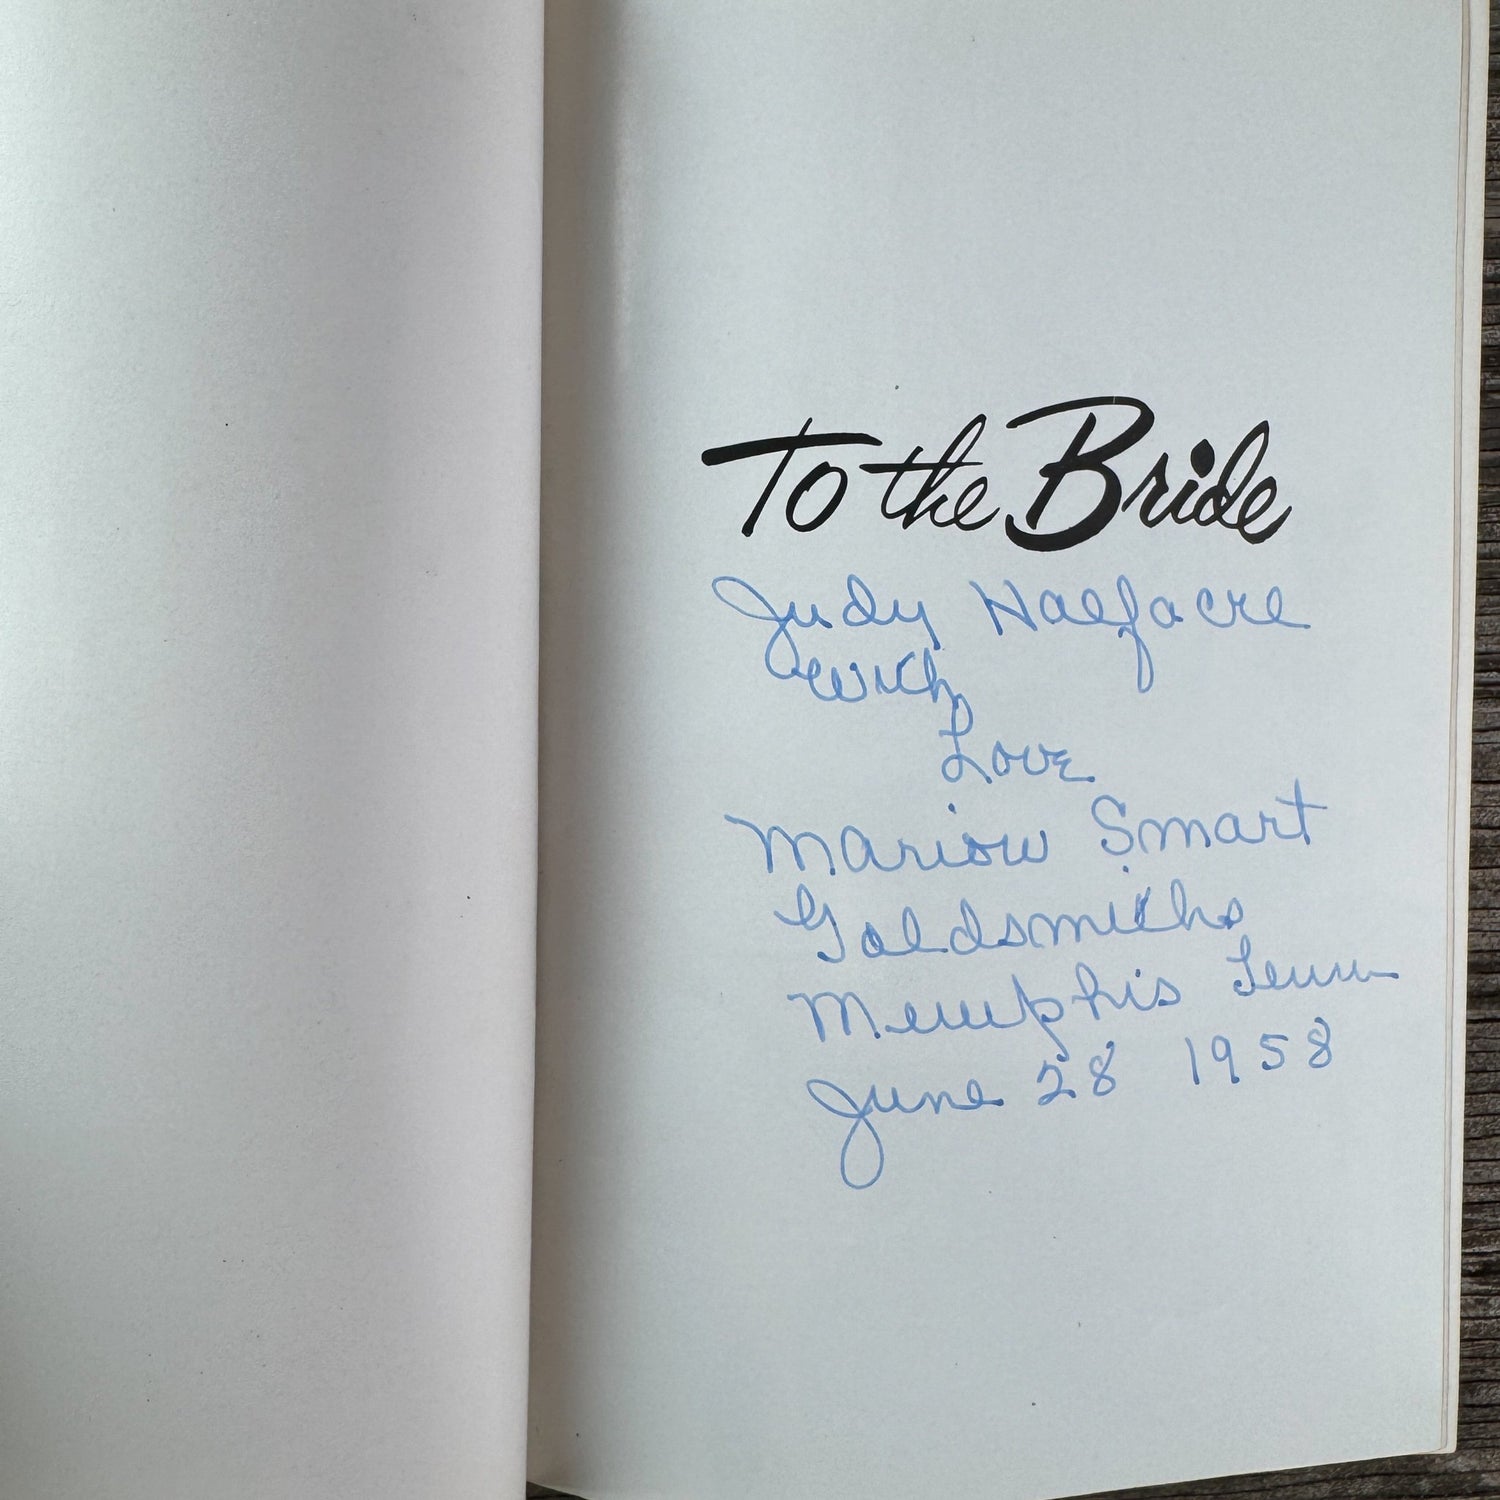 To the Bride
Judy Halfacre
with
Love
Marion Smart
Goldsmiths
Memphis Tenn
June 28 1958